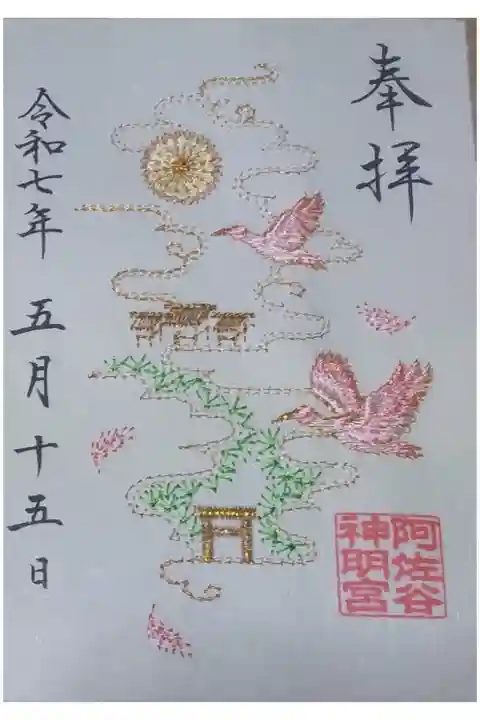 奉拝
阿佐谷
神明宮
令和七年 五月十五日